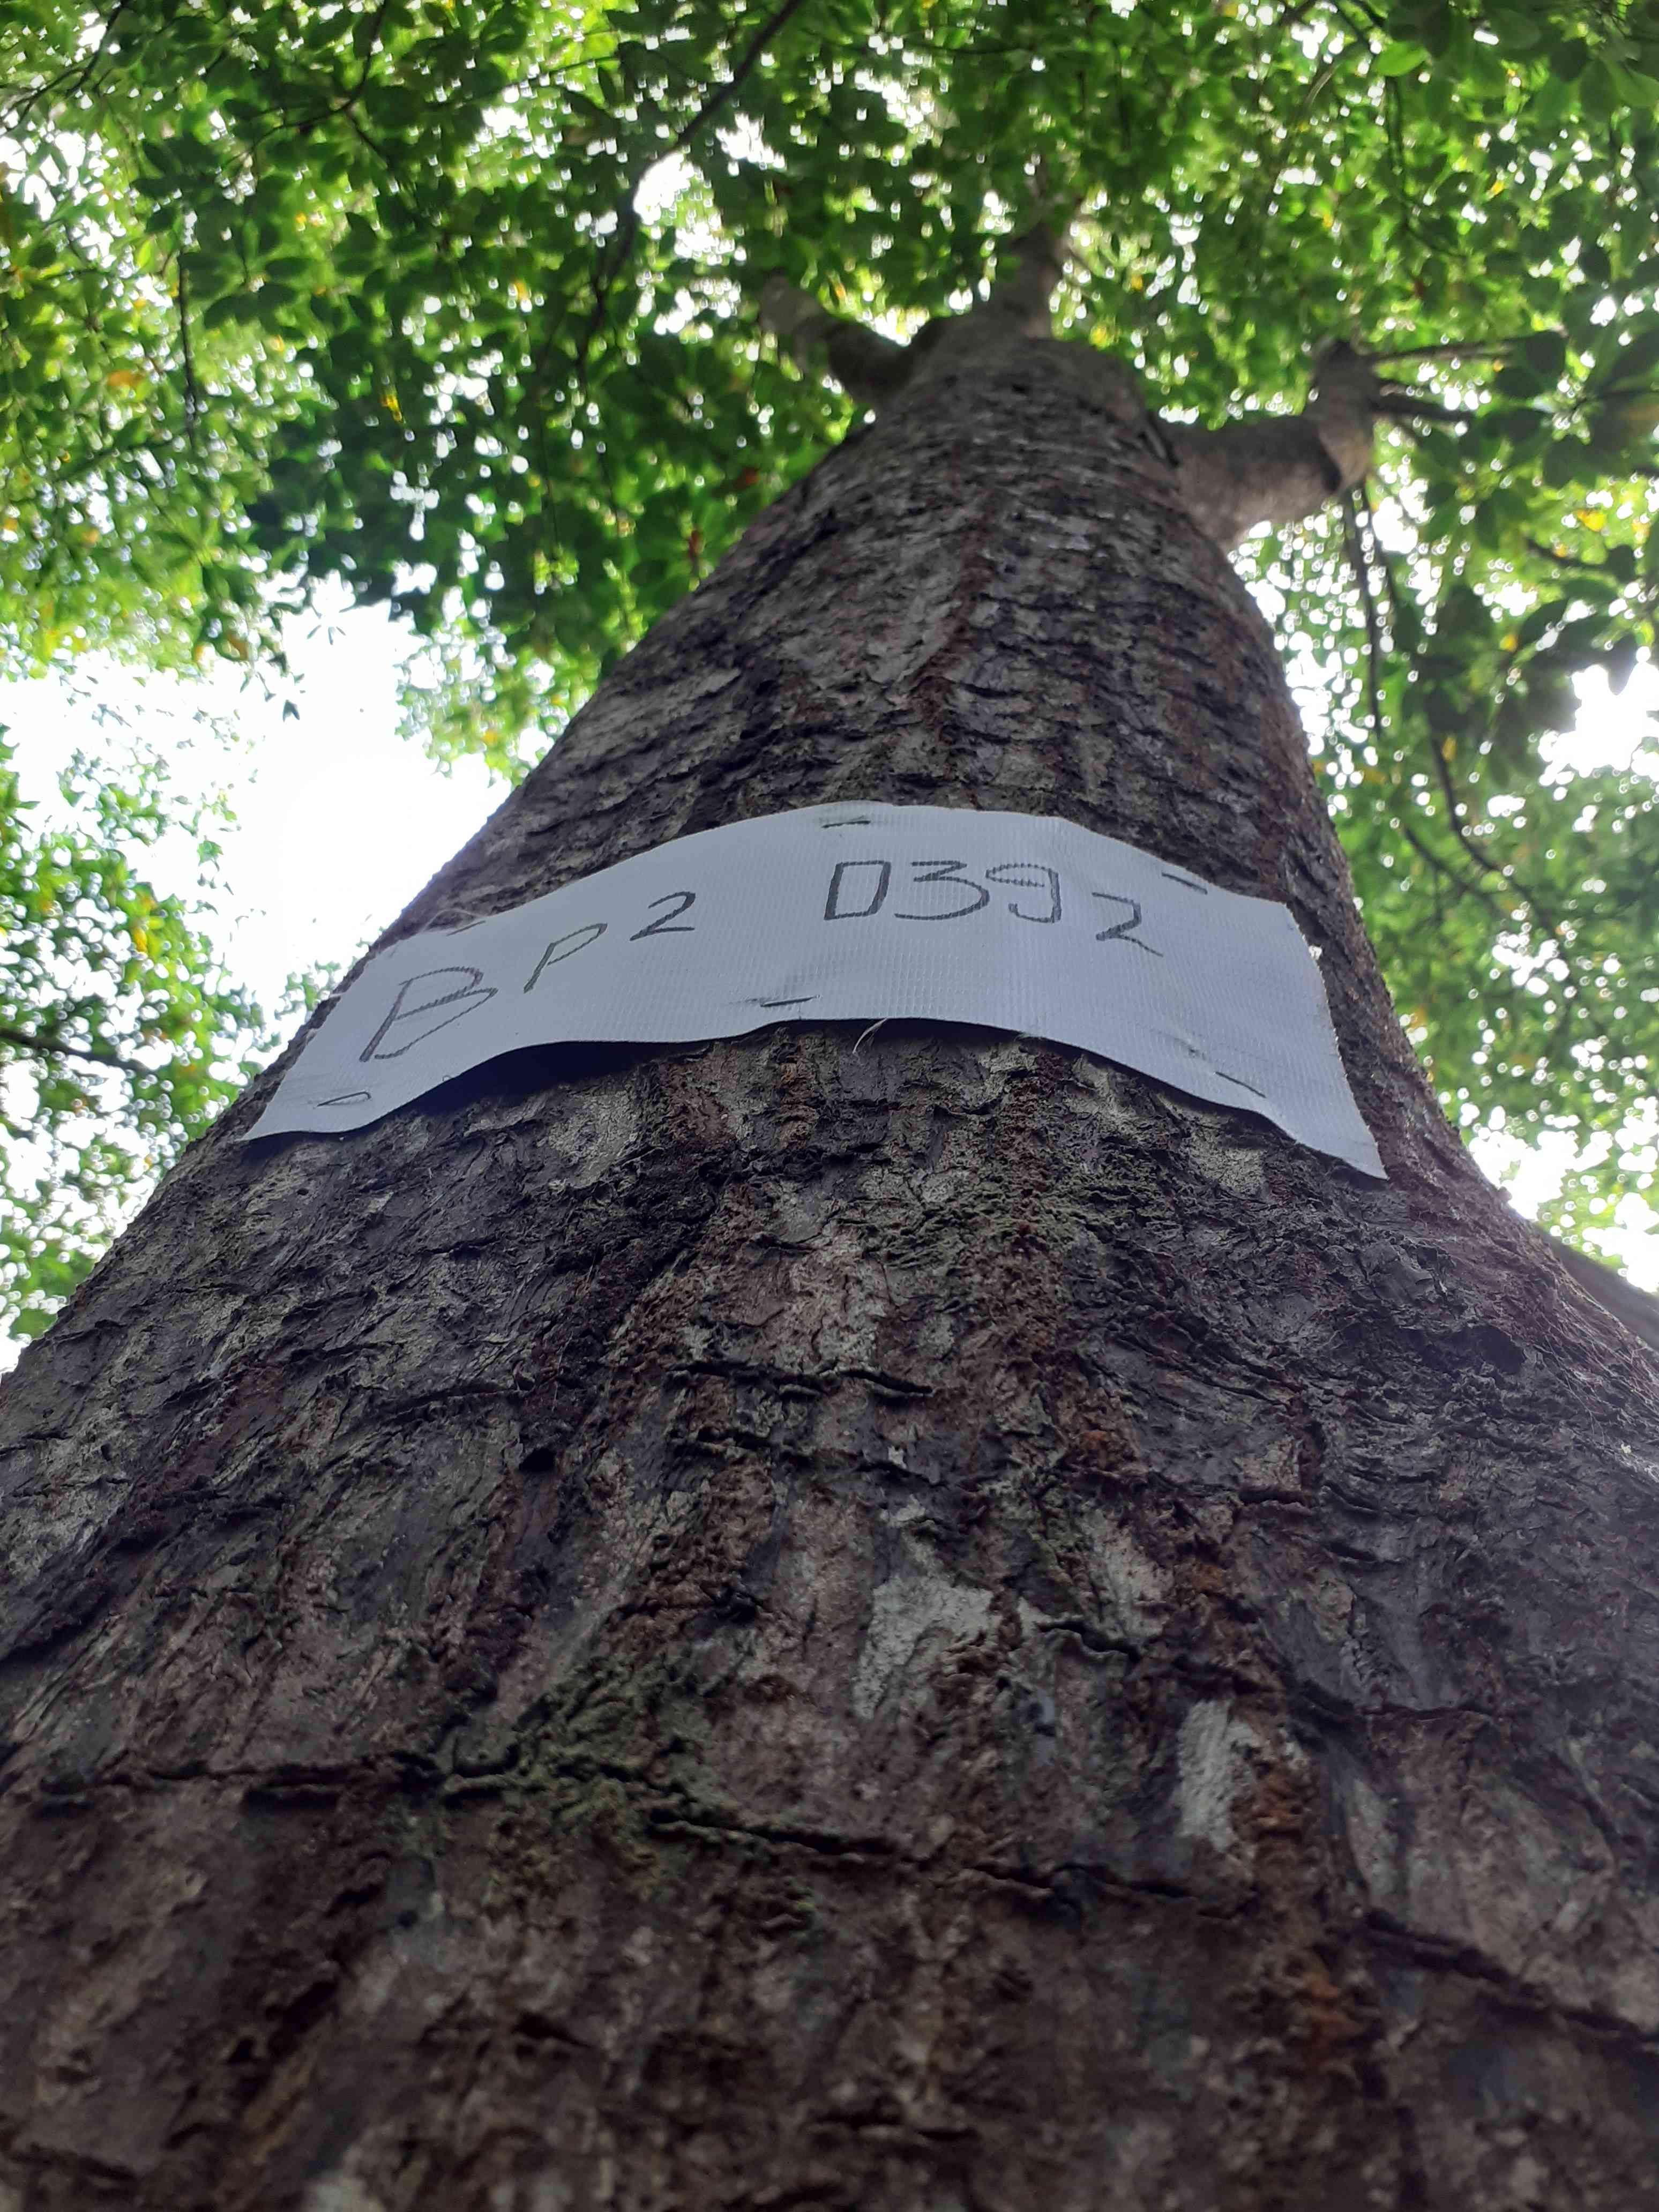 BP2 0392